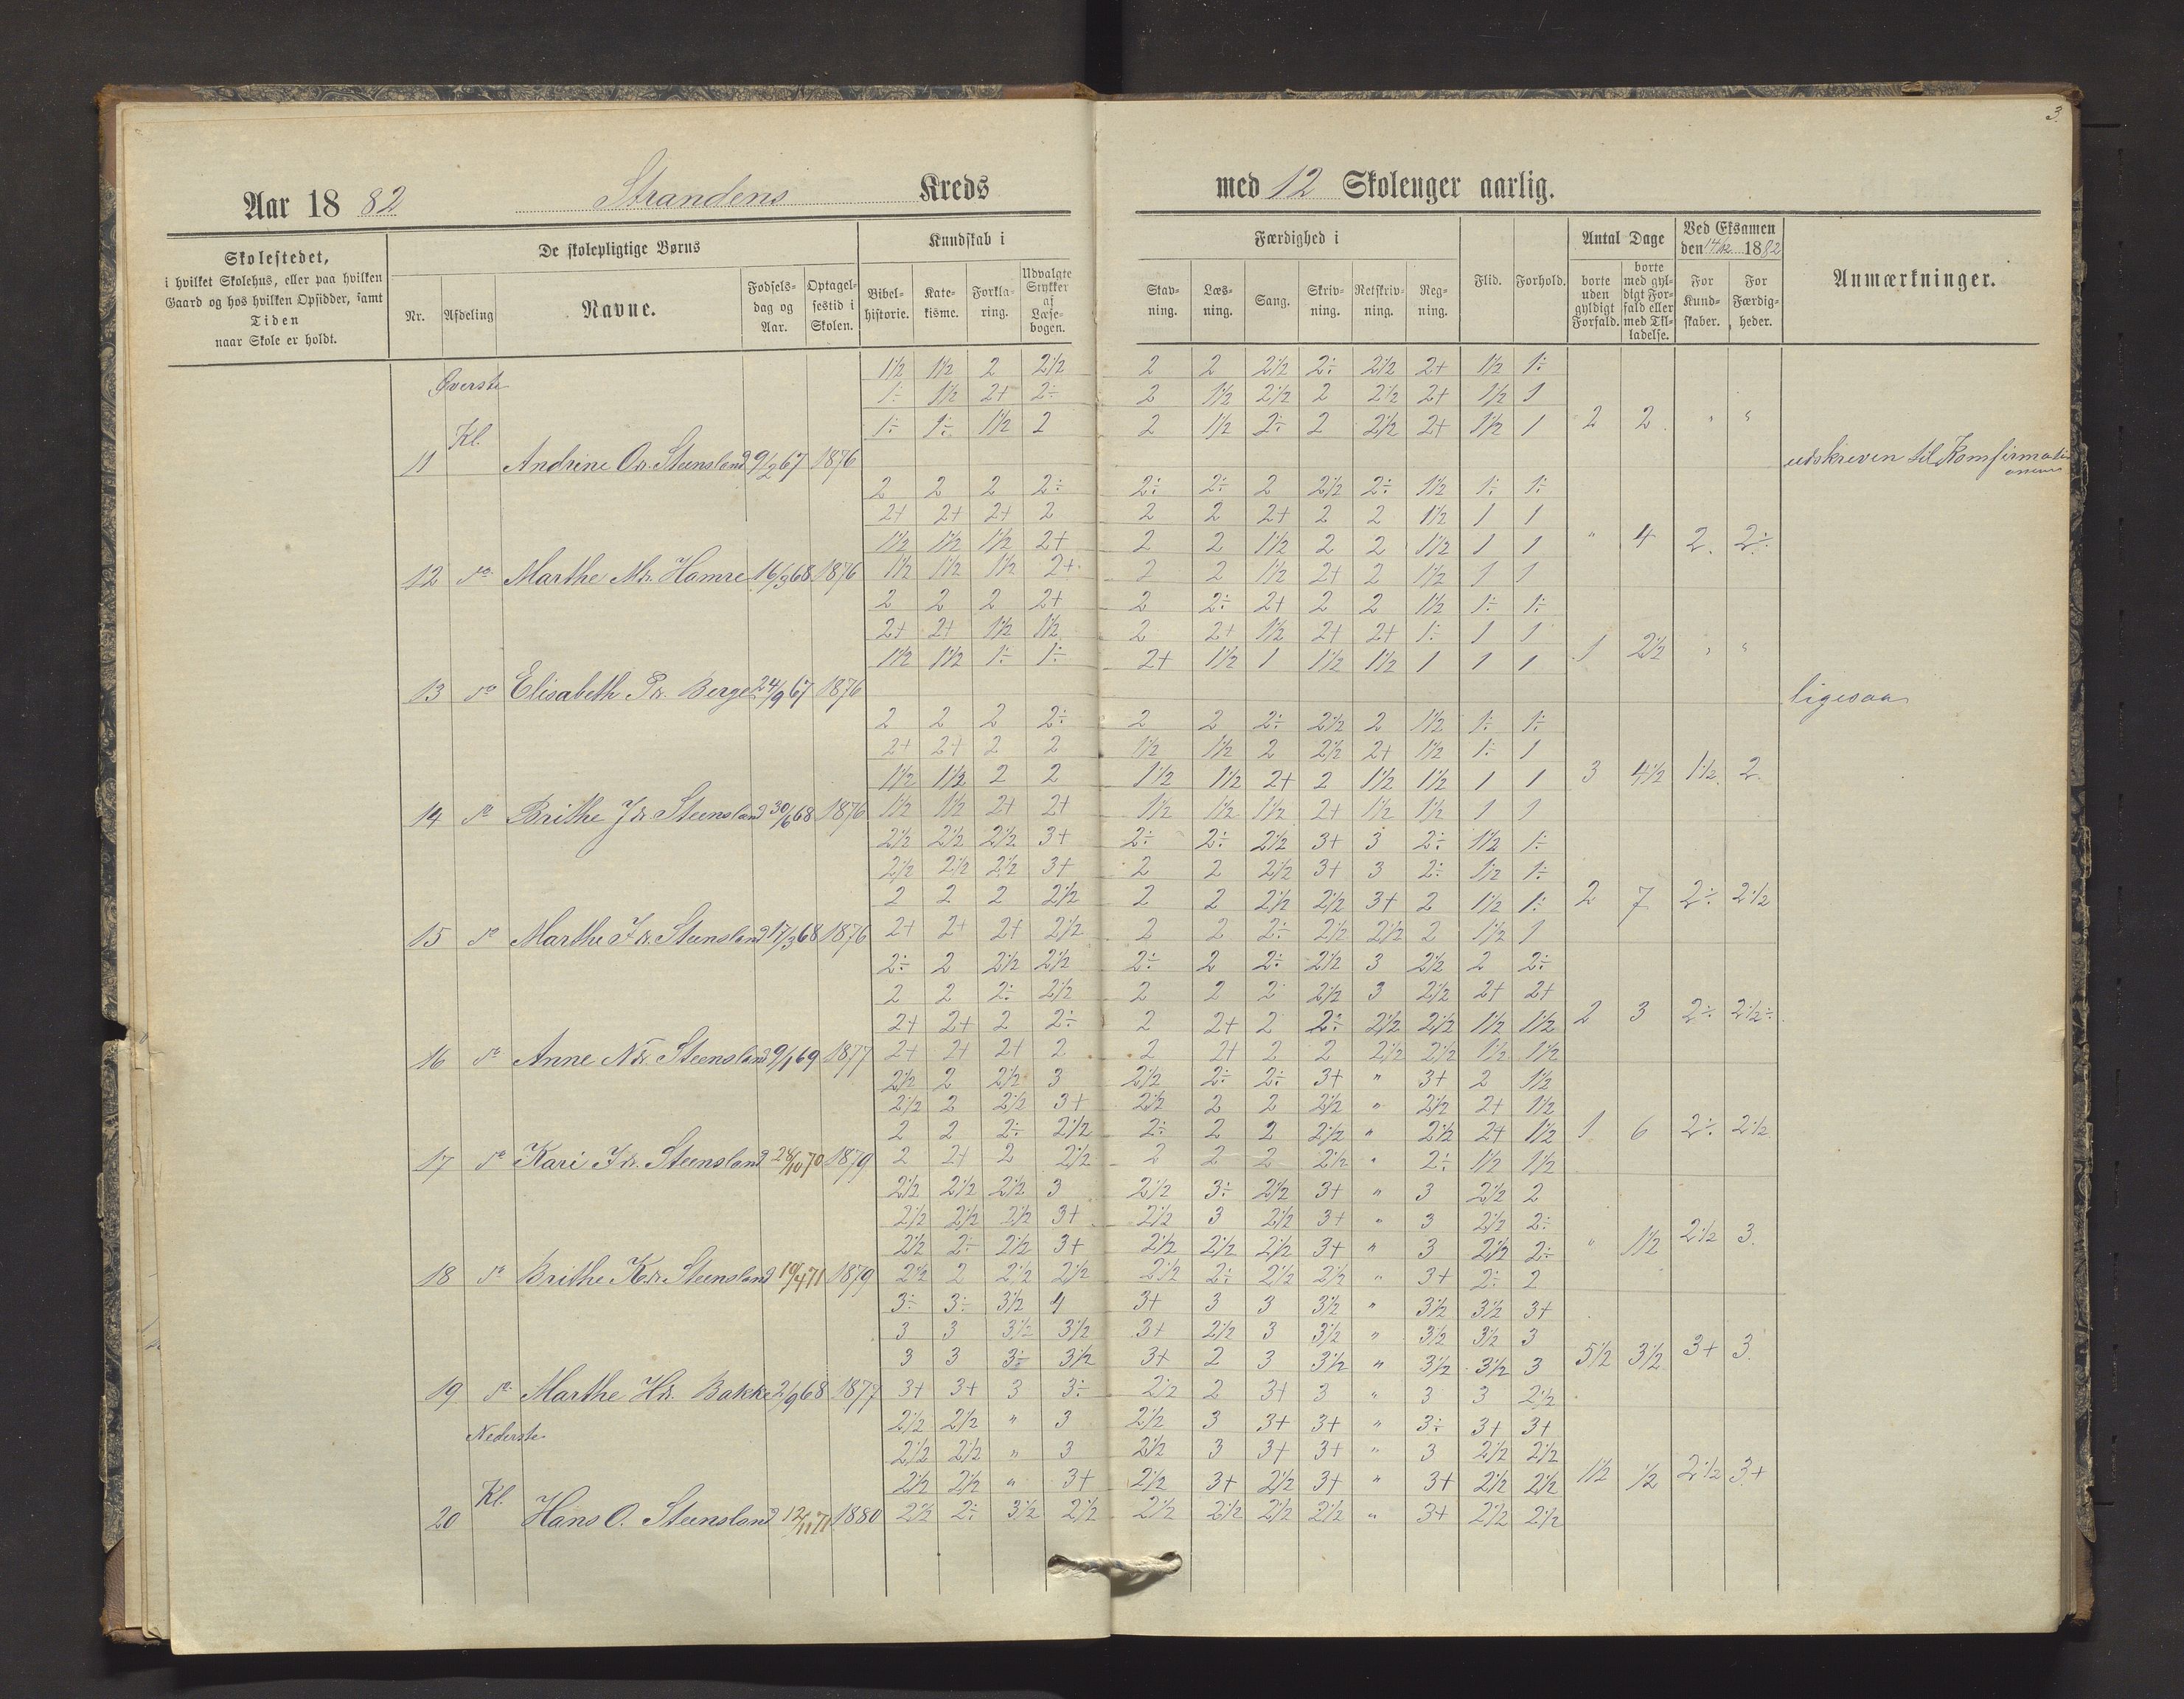 3.
Aar 1882 Strandens Kreds med 12 Skoleuger aarlig.
Skolestedet, i hvilket Skolehus, eller paa hvilken Gaard og hos hvilken Opsidder, samt Tiden naar Skole er holdt.
De skolepligtige Børns
Nr. Afdeling Navne. Fødsels-dag og Aar. Optagel-sestid i Skolen.
Kundskab i
Bibel-historie. Kate-kisme. Forkla-ring. Udvalgte Stykker af Læse-bogen.
Færdighed i
Stav-ning. Læs-ning. Sang. Skriv-ning. Retskriv-ning. Reg-ning. Flid. Forhold.
Antal Dage
borte uden gyldigt Forfald. borte med gyl-digt For-fald eller med Til-ladelse.
Ved Eksamen den 14/12 1882
For Kund-skaber. For Færdig-heder.
Anmærkninger.
1½ 1½ 2 2½ 2 2 2½ 2÷ 2½ 2+ 1½ 1÷
Øverste
1÷ 1½ 2+ 2÷ 2 1½ 2½ 2 2½ 2+ 1½ 1
Kl. 1÷ 1÷ 1½ 2 2 1½ 2÷ 2 2½ 2+ 1½ 1 2 2 " "
11 Andrine Od. Steensland 9/2 67 1876 udskreven til Konfirmationen
2 2 2 2÷ 2÷ 2÷ 2 2½ 2÷ 1½ 1÷ 1÷
2+ 2+ 2+ 2 2 2 2+ 2 2 1½ 1 1
1½ 1½ 1½ 2+ 2 2 1½ 2 2 1½ 1 1 " 4 2. 2÷
12 do Marthe Md. Hamre 16/3 68 1876 1½ 1½ 1½ 2+ 2 2 1½ 2+ 2 1½ 1 1
2 2 2 2+ 2 2÷ 2+ 2 2 1½ 1÷ 1÷
2+ 2+ 1½ 1½ 2 2+ 1½ 2+ 2+ 1÷ 1 1
1½ 1½ 1÷ 1÷ 2+ 1½ 1 1½ 1½ 1 1 1 1 2½ " "
13 do Elisabeth Pd. Berge 24/9 67 1876 ligesaa
2 2 2 2÷ 2 2 2÷ 2½ 2 1½ 1÷ 1÷
2+ 2+ 2 2 1½ 1½ 2 2½ 2+ 1½ 1÷ 1
1½ 1½ 2 2 1½ 1½ 2+ 2 1½ 1½ 1 1 3 4½ 1½ 2
14 do Brithe Jd. Steensland 30/6 68 1876 1½ 1½ 2+ 2+ 1½ 1½ 1½ 2+ 1½ 1½ 1 1
2½ 2½ 2½ 3+ 2÷ 2÷ 2½ 3+ 3 2÷ 1½ 1÷
2½ 2½ 2½ 3+ 2 2 2½ 3+ 3 2÷ 1½ 1÷
2 2 2 2½ 2 2 2½ 2½ 3+ 2 1½ 1÷ 2 7 2÷ 2½
15 do Marthe Id. Steensland 17/3 68 1876 2+ 2+ 2+ 2½ 2 2 2÷ 2½ 2½ 2 1½ 1
2÷ 2 2½ 2½ 2÷ 2 2÷ 2½ 3 2½ 2 2÷
2 2 2÷ 2½ 2 2 2 2½ 3 2½ 2+ 2+
2+ 2+ 2 2÷ 2 2+ 2 2÷ 2½ 2½ 1½ 1½ 2 3 2÷ 2½÷
16 do Anne Nd. Steensland 9/1 69 1877 2+ 2+ 2+ 2 2 2+ 2 2 2½ 2½ 1½ 1½
2½ 2 2½ 3 2½ 2÷ 2÷ 3+ " 3+ 2 1½
2½ 2 2½ 3+ 2½ 2 2 2½ " 2½ 2+ 1½
2 2 2÷ 2½ 2÷ 2 2 2½ " 2½ 2+ 1½ 1 6 2÷ 2½
17 do Kari Id. Steensland 28/10 70 1879 2 2+ 2 2½ 2 2 2 2½ " 2÷ 1½ 1½
2½ 2½ 2½ 3 2½ 3÷ 2½ 3+ " 3 2½ 2
2½ 2½ 2½ 3+ 2½ 3 2½ 3+ " 3 2½ 2÷
2½ 2÷ 2½ 3+ 2½ 2½ 2½ 3+ " 3 2½ 2÷ " 1½ 2½ 3.
18 do Brithe Kd. Steensland 10/4 71 1879 2½ 2 2½ 2½ 2½ 2÷ 2½ 2½ " 3+ 2÷ 2
3÷ 3÷ 3½ 4 3+ 3 3 3½ " 3½ 3½ 3+
3 3 3½ 3½ 3+ 2½ 3 3½ " 3½ 3½ 3
3 3 3÷ 3½ 3+ 2 3 3½ " 3½ 3½ 3 5½ 3½ 3+ 3.
19 do Marthe Hd. Bakke 2/9 68 1877 3+ 3+ 3 3÷ 2½ 2 3+ 3 " 3 3 2½
2½ 2½ " 3 2½ 3 3+ 3+ " 3÷ 3+ 3+
Nederste
2½ 2½ " 3 2½ 3 3+ 3+ " 3 2½ 2½
Kl. 2½ 2½ " 3+ 2½ 3+ 2½ 3+ " 3+ 2½ 2½ 1½ ½ 2½ 3+
20 Hans O. Steensland 12/11 71 1880 2½ 2÷ 3½ 2½ 2½ 2½ 2½ 2½ " 3+ 2½ 2½